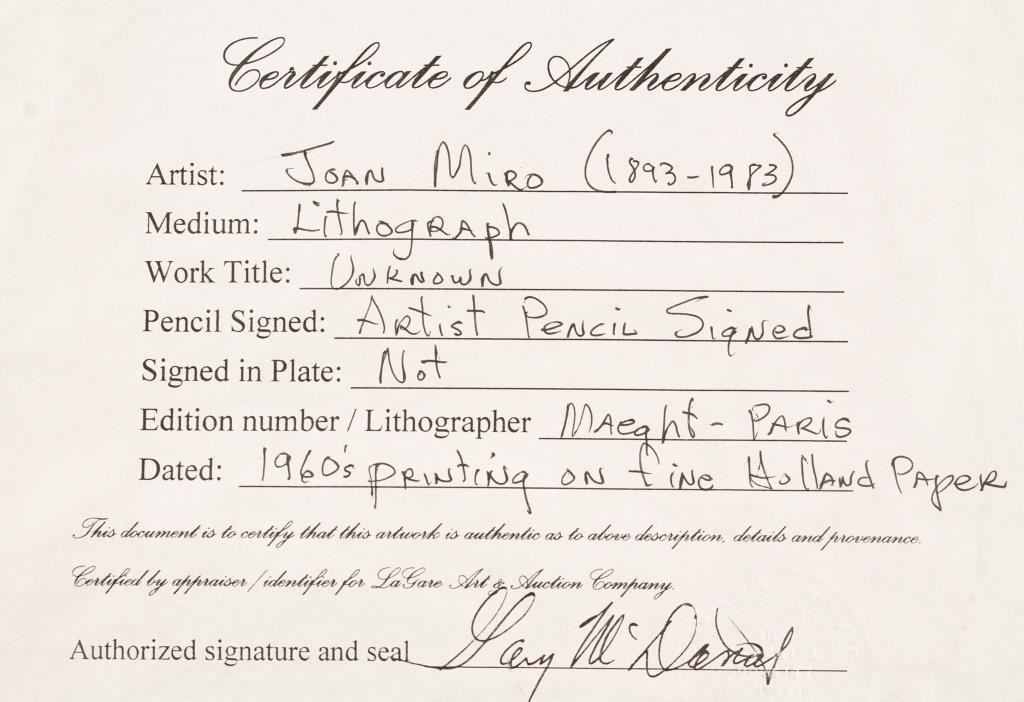 Certificate of Authenticity
Artist: Joan Miro (1893-1983)
Medium: Lithograph
Work Title: Unknown
Pencil Signed: Artist Pencil Signed
Signed in Plate: Not
Edition number / Lithographer Maeght - Paris
Dated: 1960's printing on fine Holland Paper
This document is to certify that this artwork is authentic as to above description, details and provenance.
Certified by appraiser / identifier for LaGare Art & Auction Company.
Authorized signature and seal Gary McDonald